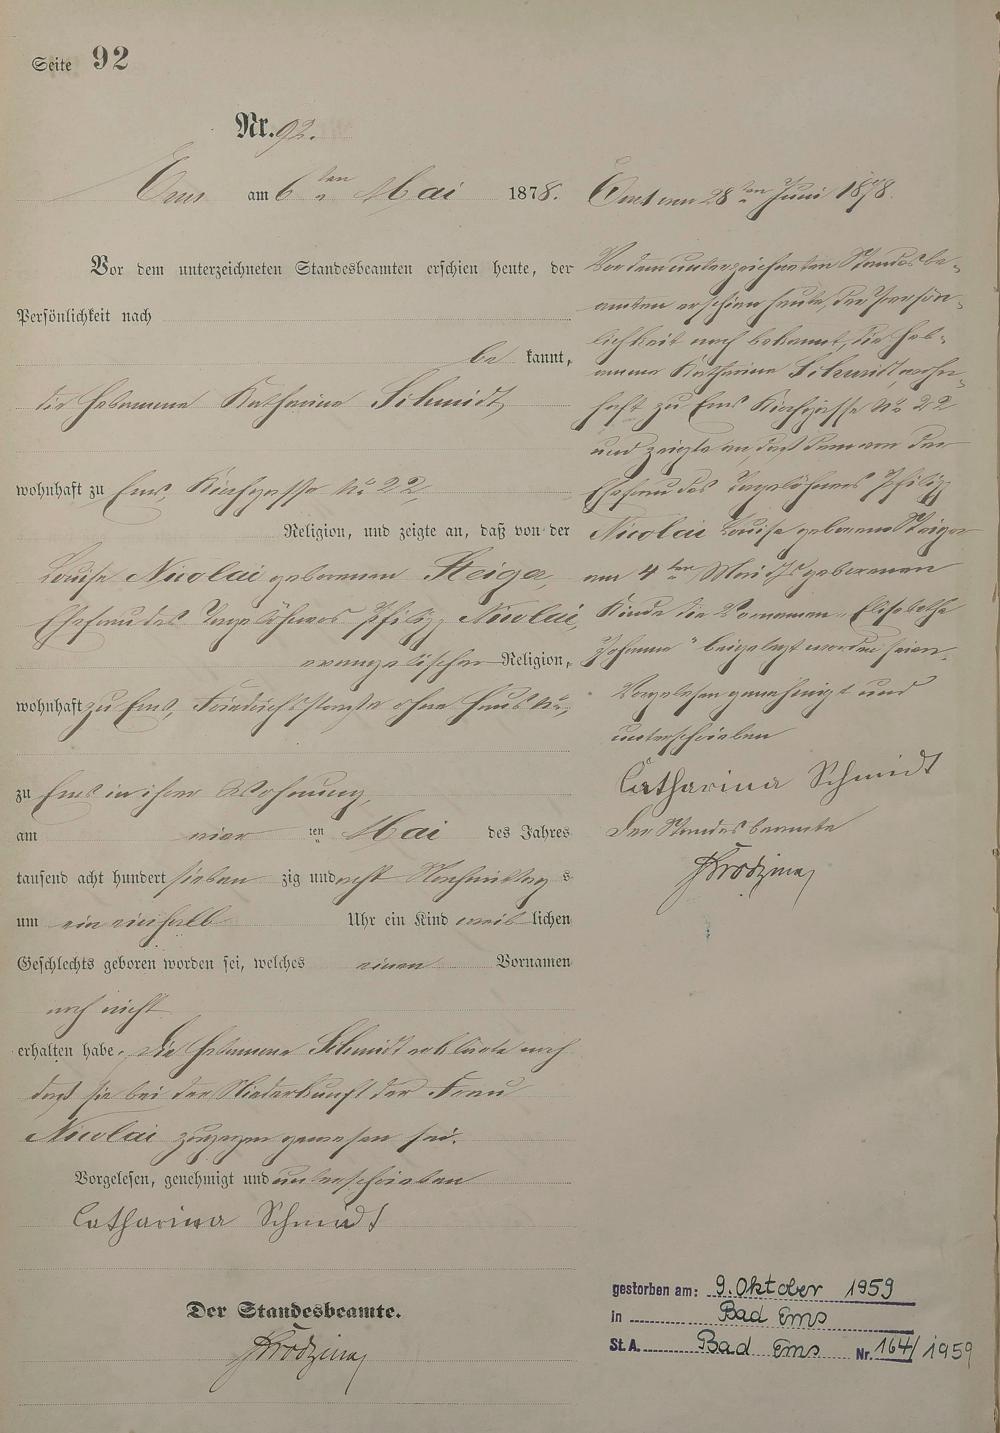 Seite 92
Nr. 92.
Ems am 6ten Mai 1878.
Vor dem unterzeichneten Standesbeamten erschien heute, der
Persönlichkeit nach
be kannt,
die Hebamme Katharina Schmidt
wohnhaft zu Ems, Kirchgasse No 22
Religion, und zeigte an, daß von der
Louise Nicolai geborenen Steiger,
Ehefrau des Tagelöhners Philipp Nicolai,
evangelischer Religion,
wohnhaft zu Ems, Friedrichsstraße ohne Haus No,
zu Ems in ihrer Wohnung,
am vier ten Mai des Jahres
tausend acht hundert sieben zig und acht Nachmittag s
um ein einhalb Uhr ein Kind weib lichen
Geschlechts geboren worden sei, welches einen Vornamen
noch nicht
erhalten habe. Die Hebamme Schmidt erklärte noch
daß sie bei der Niederkunft der Frau
Nicolai zugegen gewesen sei.
Vorgelesen, genehmigt und unterschrieben
Catharina Schmidt
Der Standesbeamte.
Ems am 28ten Juni 1878.
Vor dem unterzeichneten Standesbe-
amten erschien heute, der Persön-
lichkeit nach bekannt, die Heb-
amme Katharina Schmidt, wohn-
haft zu Ems Kirchgasse No 22
und zeigte an, daß dem von der
Ehefrau des Tagelöhners Philipp
Nicolai Louise geborenen Steiger
am 4ten Mai geborenen
Kinde die Vornamen „Elisabethe
Johanna" beigelegt worden seien.
Vorgelesen genehmigt und
unterschrieben
Catharina Schmidt
Der Standesbeamte
gestorben am: 9. Oktober 1959
in Bad Ems
St. A. Bad Ems Nr. 164/1959